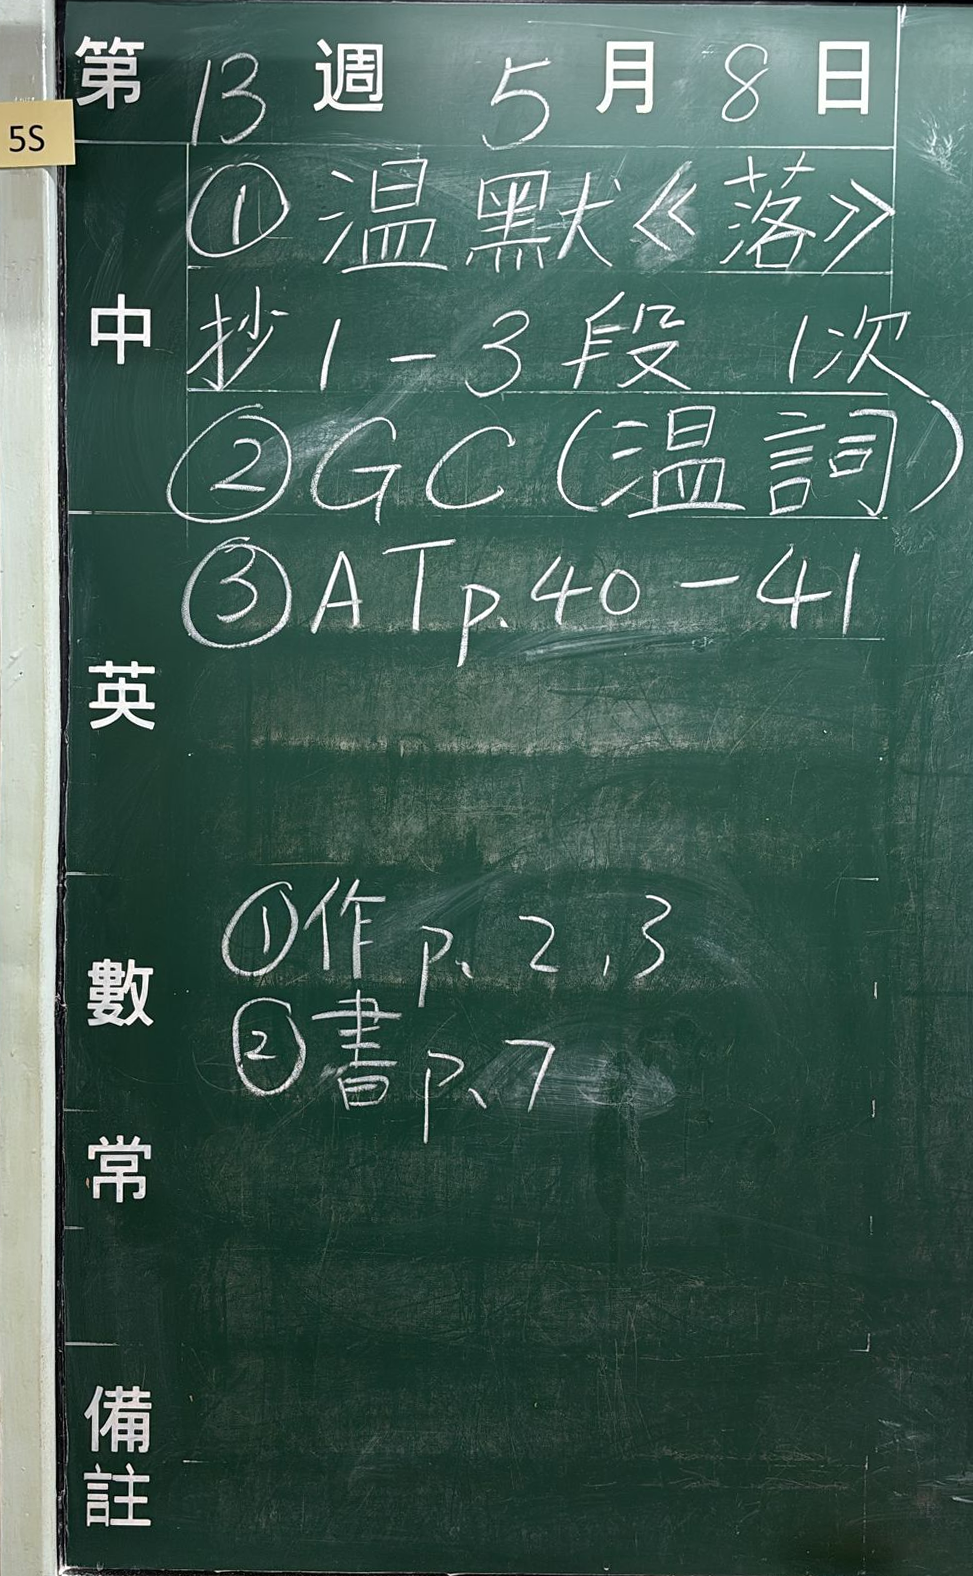 第 13 週 5 月 8 日
5S
① 温默《落》
中
抄 1 - 3 段 1次
② GC (温詞)
③ AT p. 40 - 41
英
① 作 p. 2, 3
數
② 書 p. 7
常
備
註